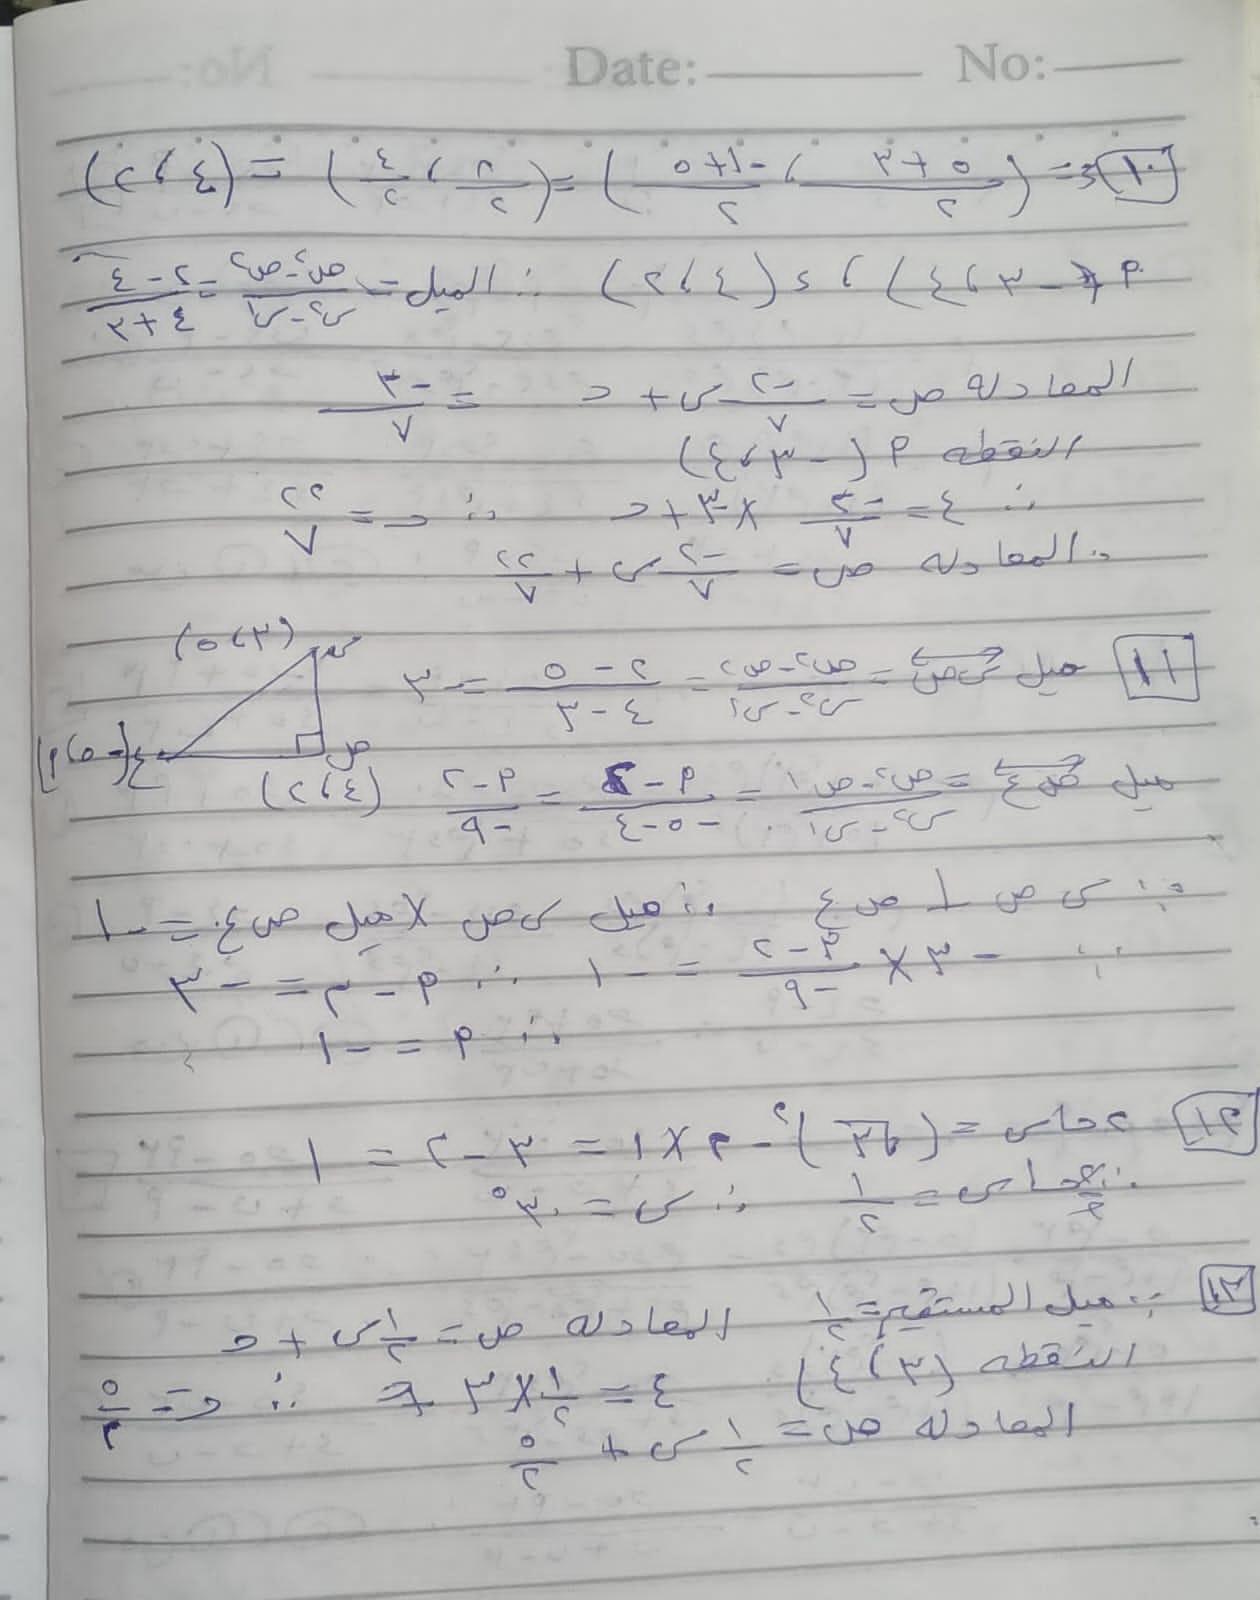 Date: No:
[١٠] د = (٥+٣/٢ ، -١+٥/٢) = (٨/٢ ، ٤/٢) = (٤ ، ٢)
٢ (-٣ ، ٤) ، د (٤ ، ٢) ∴ الميل = ص٢-ص١/س٢-س١ = ٢-٤/٤+٣
المعادله ص = -٢/٧ س + حـ = -٢/٧
النقطه م (-٣ ، ٤)
∴ ٤ = -٢/٧ × -٣ + حـ ∴ حـ = ٢٢/٧
∴ المعادله ص = -٢/٧ س + ٢٢/٧
(٣ ، ٥) س
[١١] ميل س ص = ص٢-ص١/س٢-س١ = ٢-٥/٤-٣ = -٣
ع (-٥ ، م) ص (٤ ، ٢)
ميل ص ع = ص٢-ص١/س٢-س١ = م-٢/-٥-٤ = م-٢/-٩
∵ س ص ⊥ ص ع ∴ ميل س ص × ميل ص ع = -١
∴ -٣ × م-٢/-٩ = -١ ∴ م-٢ = -٣
∴ م = -١
[١٢] ٢ حاس = (√٣)² - ٢×١ = ٣-٢ = ١
∴ حاس = ١/٢ ∴ س = ٣٠°
[١٣] ∵ ميل المستقيم = ١/٢ المعادله ص = ١/٢ س + حـ
النقطه (٣ ، ٤) ٤ = ١/٢ × ٣ + حـ ∴ حـ = ٥/٢
المعادله ص = ١/٢ س + ٥/٢